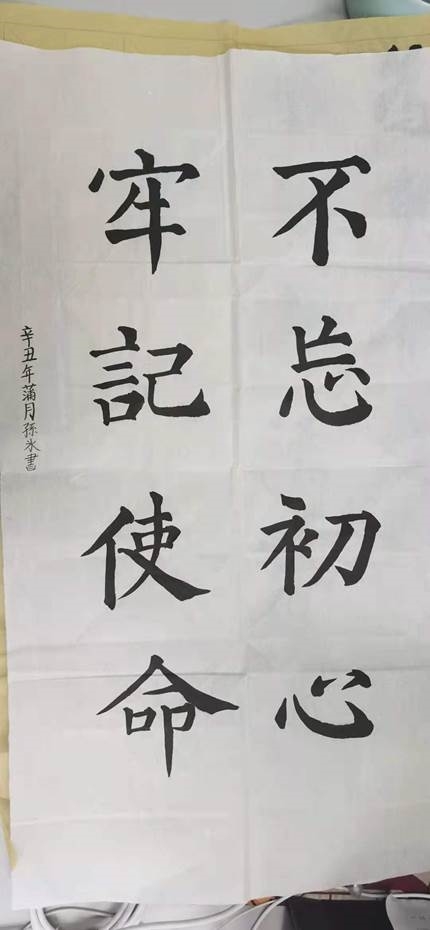 不忘初心
牢記使命
辛丑年蒲月孫氷書